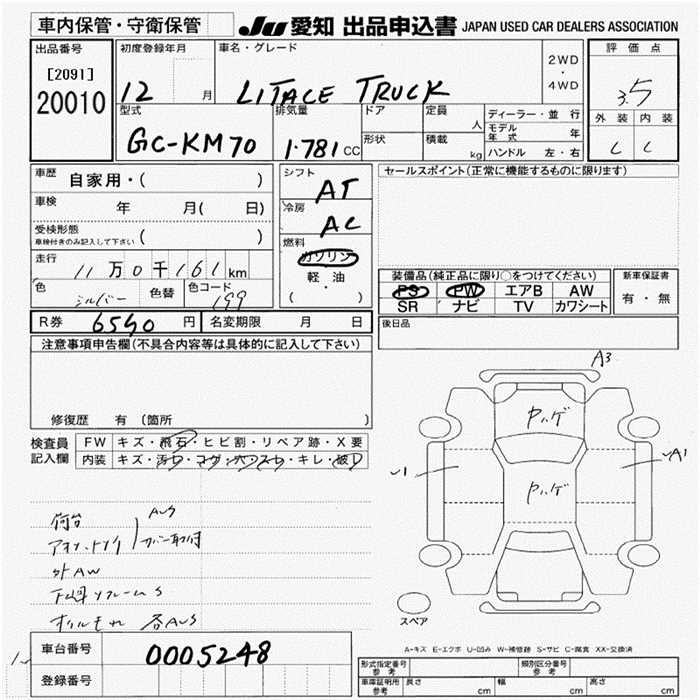 車内保管・守衛保管
JU 愛知 出品申込書 JAPAN USED CAR DEALERS ASSOCIATION
出品番号
[2091]
20010
初度登録年月
12 月
車名・グレード
LITACE TRUCK
2WD
・
4WD
評価点
3.5
外装 内装
C C
型式
GC-KM70
排気量
1.781 CC
ドア
形状
定員
人
積載
kg
ディーラー・並行
モデル年式 年
ハンドル 左・右
車歴
自家用・( )
車検
年 月( 日)
受検形態
車検付きのみ記入して下さい ( )
走行
11万0千161km
色
シルバー
色替
色コード
199
シフト
AT
冷房
AC
燃料
ガソリン
軽・油
( )
セールスポイント(正常に機能するものに限ります)
装備品(純正品に限り○をつけてください)
PS PW エアB AW
SR ナビ TV カワシート
新車保証書
有・無
後日品
R券 6590 円
名変期限 月 日
注意事項申告欄(不具合内容等は具体的に記入して下さい)
修復歴 有 (箇所 )
検査員
記入欄
FW キズ・飛石・ヒビ割・リペア跡・X要
内装 キズ・汚れ・コゲ・穴・スレ・キレ・破レ
A3
ヤハゲ
ヤハゲ
A1
荷台
AUS
カバー取付
外AW
下廻りフレームS
オイルもれ 各AUS
スペア
A-キズ E-エクボ U-凹み W-補修跡 S-サビ C-腐食 XX-交換済
車台番号
0005248
登録番号
形式指定番号
参考
類別区分番号
参考
車庫証明用
参考
長さ cm
幅 cm
高さ cm